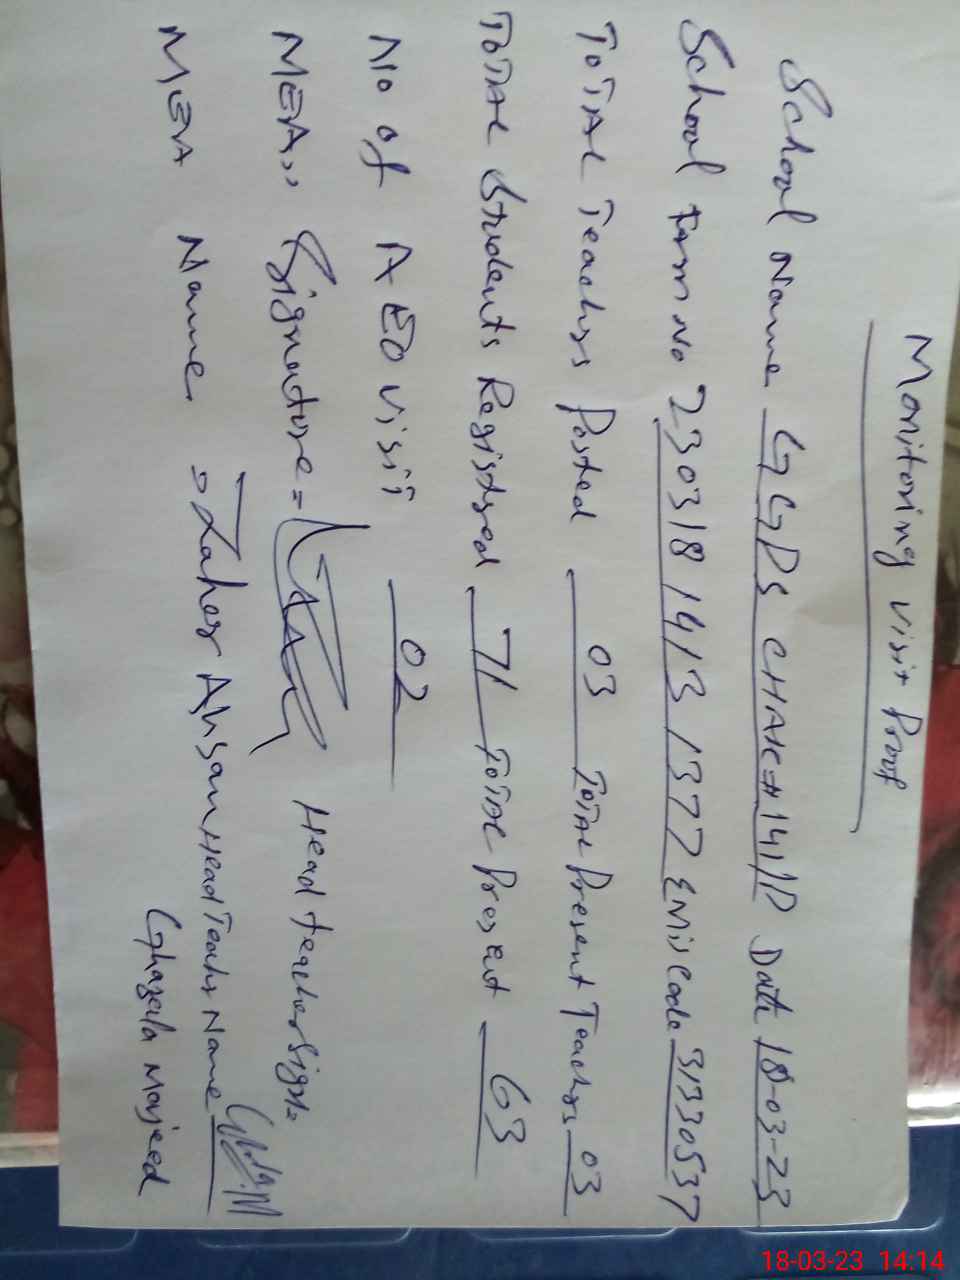 Monitoring visit Proof
School Name GGPS CHAK # 141/P Date 18-03-23
School Form No 2303181413 1377 EMIS Code 31330537
ToTAL Teachers Posted 03 ToTAL Present Teachers 03
ToTAL Students Registered 71 ToTAL Present 63
No of AEO visit 02
MEA,, Signature = Head teacher Sign=
MEA Name = Taher Ahsan Head Teachr Name
Ghazala Majeed
18-03-23 14:14